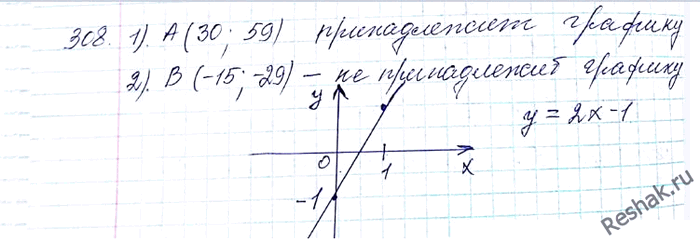 308. 1). A (30; 59) принадлежит графику
2). B (-15; -29) – не принадлежит графику
y
y = 2x-1
0 1 x
-1
Reshak.ru